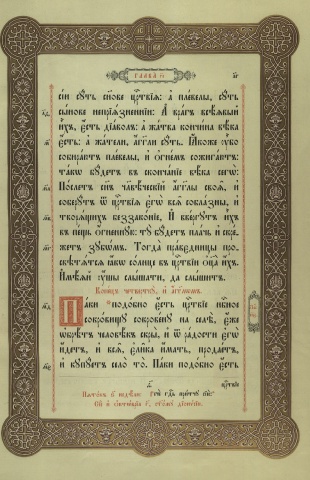 ГЛАВА
сїи сꙋть сн҃ове црⷭ҇твїѧ: а плевелы, сꙋть
сынове непрїѧзненнїи: А врагъ всѣѧвый
ихъ, єсть дїаволъ: а жатва кончина вѣка
єсть: а жатели, а҆гг҃ли сꙋть. Ꙗкоже ѹбо
собираютъ плевелы, и огнемъ сожигаютъ:
тако бꙋдетъ въ скончанїе вѣка сегѡ̀:
Послетъ сн҃ъ чл҃вѣческїй а҆гг҃лы своѧ, и
соберꙋтъ ѿ црⷭ҇твїѧ єгѡ̀ всѧ соблазны, и
творѧщихъ беззаконїе, И ввергꙋтъ ихъ
въ пещь огненнꙋю: тꙋ бꙋдетъ плачь и скре-
жетъ зꙋбѡмъ. Тогда праведницы про-
свѣтѧтсѧ ꙗкѡ солнце въ црⷭ҇твїи оц҃а ихъ.
Имѣѧй ѹшы слышати, да слышитъ.
Конецъ четверткꙋ, и
Паки подобно єсть црⷭ҇твїе нбⷭ҇ное
сокровищꙋ сокровенꙋ на селѣ, єже
ѡбрѣтъ человѣкъ скры, и ѿ радости єгѡ̀
идетъ, и всѧ, єлика имать, продаетъ,
и кꙋпꙋетъ село то. Паки подобно єсть
црⷭ҇твїе